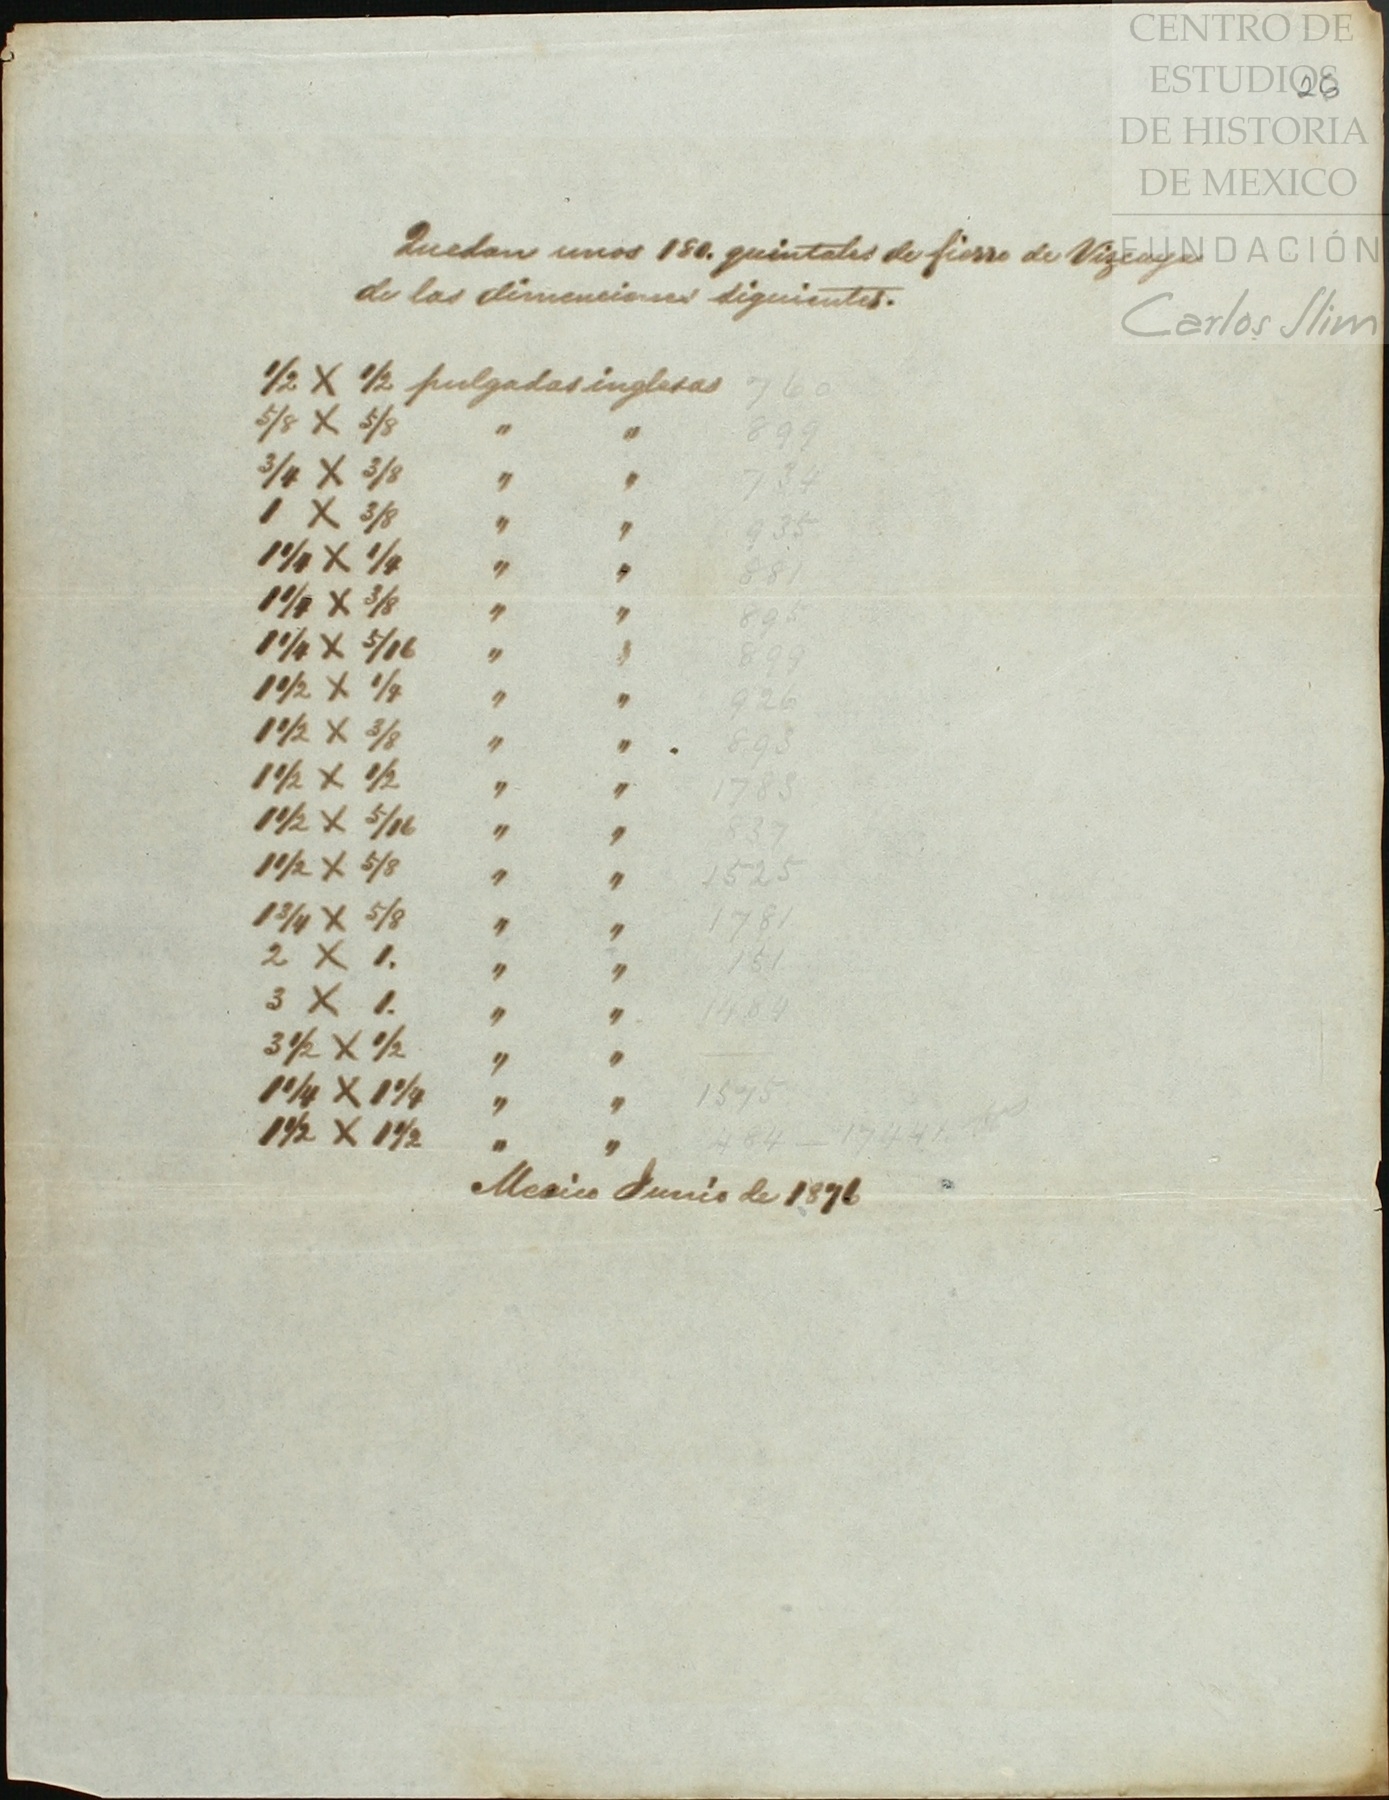 CENTRO DE
ESTUDIOS
DE HISTORIA
DE MEXICO
FUNDACIÓN
Carlos Slim
26
Quedan unos 180. quintales de fierro de Vizcaya
de las dimenciones siguientes.
1/2 X 1/2 pulgadas inglesas 760
5/8 X 5/8 " " 899
3/4 X 3/8 " " 734
1 X 3/8 " " 935
1 1/4 X 1/4 " " 881
1 1/4 X 3/8 " " 895
1 1/4 X 5/16 " " 899
1 1/2 X 1/4 " " 926
1 1/2 X 3/8 " " 893
1 1/2 X 1/2 " " 1783
1 1/2 X 5/16 " " 837
1 1/2 X 5/8 " " 1525
1 3/4 X 5/8 " " 1781
2 X 1. " " 151
3 X 1. " " 1484
3 1/2 X 1/2 " " —
1 1/4 X 1 1/4 " " 1575
1 1/2 X 1 1/2 " " 484 — 17441
Mexico Junio de 1876